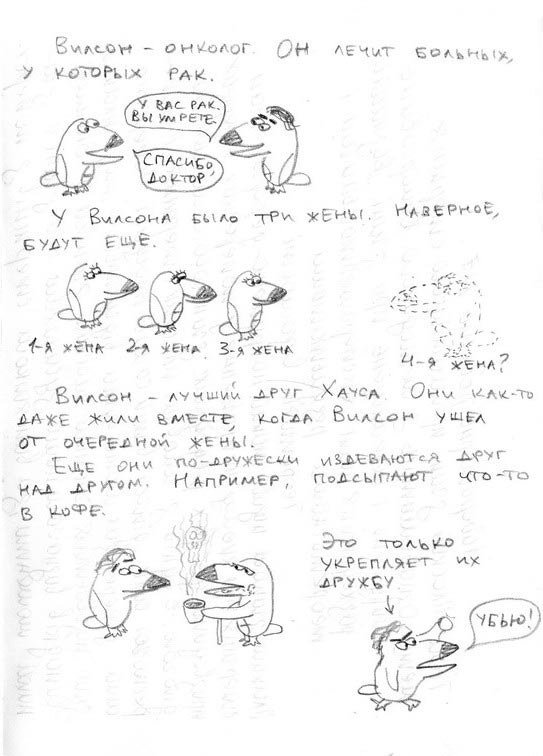 Вилсон – онколог. Он лечит больных,
у которых рак.
У вас рак.
Вы умрете.
Спасибо,
доктор!
У Вилсона было три жены. Наверное,
будут ещё.
1-я жена 2-я жена 3-я жена
4-я жена?
Вилсон – лучший друг Хауса. Они как-то
даже жили вместе, когда Вилсон ушел
от очередной жены.
Еще они по-дружески издеваются друг
над другом. Например, подсыпают что-то
в кофе.
Это только
укрепляет их
дружбу
Убью!